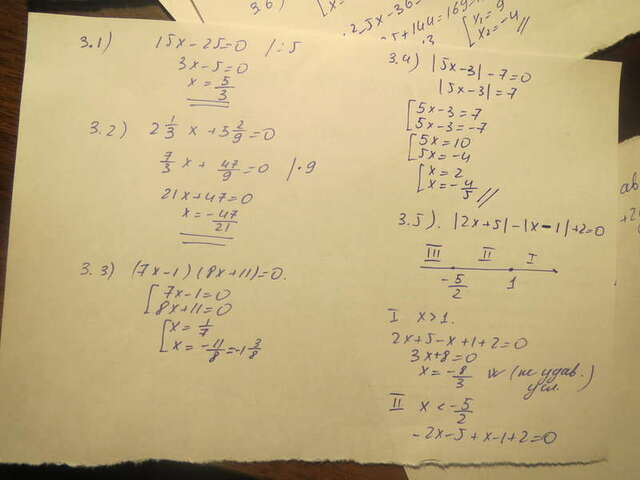 3.6)
x₁ = 9
x₂ = -4 //
3.1) 15x - 25 = 0 | : 5
3x - 5 = 0
x = 5/3
3.2) 2 1/3 x + 5 2/9 = 0
7/3 x + 47/9 = 0 | · 9
21x + 47 = 0
x = -47/21
3.3) (7x-1)(8x+11)=0.
[7x-1=0
8x+11=0
[x = 1/7
x = -11/8 = -1 3/8
3.4) |5x-3| - 7 = 0
|5x-3| = 7
[5x-3=7
5x-3=-7
[5x=10
5x=-4
[x=2
x=-4/5 //
3.5). |2x+5|-|x-1|+2=0
III II I
-5/2 1
I x>1.
2x+5-x+1+2=0
3x+8=0
x=-8/3 (не удов. усл.)
II x<-5/2
-2x-5+x-1+2=0